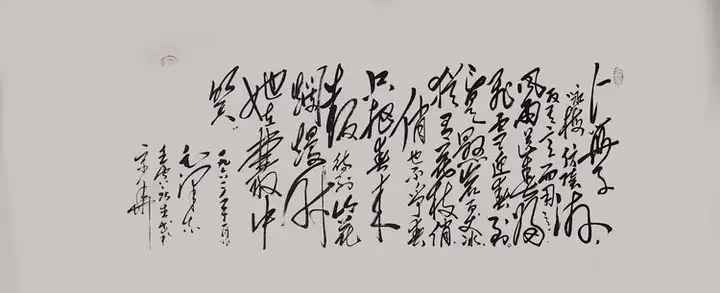 卜算子
咏梅 读陆游
反其意而用之
风雨送春归
飞雪迎春到
已是悬崖百丈冰
犹有花枝俏
俏也不争春
只把春来
报待到山花
烂熳时
她在丛中
笑
一九六一年十二月
毛泽东
京华